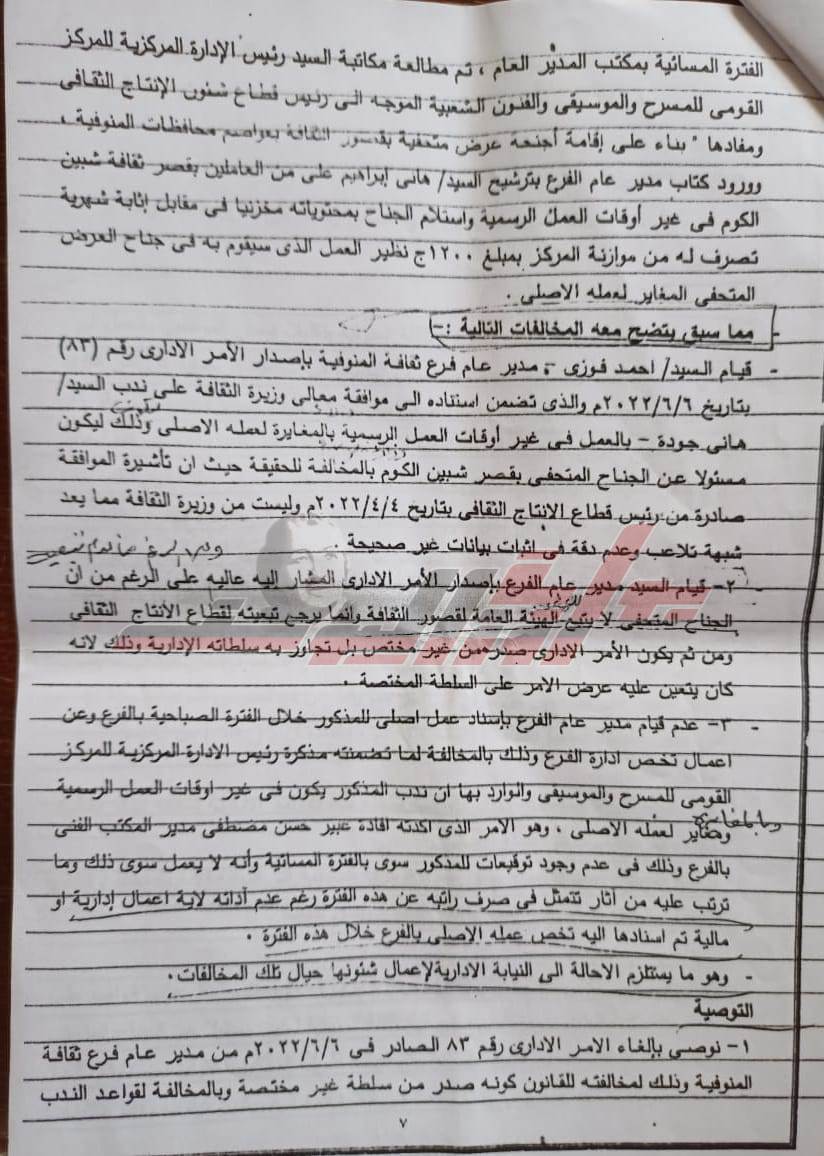 الفترة المسائية بمكتب المدير العام ، تم مطالعة مكاتبة السيد رئيس الإدارة المركزية للمركز
القومى للمسرح والموسيقى والفنون الشعبية الموجه الى رئيس قطاع شئون الإنتاج الثقافى
ومفادها " بناء على إقامة أجنحة عرض متحفية بقصور الثقافة بعواصم محافظات المنوفية ،
وورود كتاب مدير عام الفرع بترشيح السيد/ هانى إبراهيم على من العاملين بقصر ثقافة شبين
الكوم فى غير أوقات العمل الرسمية واستلام الجناح بمحتوياته مخزنيا فى مقابل إثابة شهرية
تصرف له من موازنة المركز بمبلغ ١٢٠٠ج نظير العمل الذى سيقوم به فى جناح العرض
المتحفى المغاير لعمله الاصلى .
مما سبق يتضح معه المخالفات التالية :-
- قيام السيد/ احمد فوزى - مدير عام فرع ثقافة المنوفية بإصدار الأمر الادارى رقم (٨٣)
بتاريخ ٢٠٢٢/٦/٦م والذى تضمن استناده الى موافقة معالى وزيرة الثقافة على ندب السيد/
هانى جودة – بالعمل فى غير أوقات العمل الرسمية بالمغايرة لعمله الاصلى وذلك ليكون
مسئولا عن الجناح المتحفى بقصر شبين الكوم بالمخالفة للحقيقة حيث ان تأشيرة الموافقة
صادرة من رئيس قطاع الإنتاج الثقافى بتاريخ ٢٠٢٢/٤/٤م وليست من وزيرة الثقافة مما يعد
شبهة تلاعب وعدم دقة فى اثبات بيانات غير صحيحة .
٢- قيام السيد مدير عام الفرع بإصدار الأمر الادارى المشار إليه عاليه على الرغم من أن
الجناح المتحفى لا يتبع الهيئة العامة لقصور الثقافة وانما يرجع تبعيته لقطاع الأنتاج الثقافى
ومن ثم يكون الأمر الادارى صدر من غير مختص بل تجاوز به سلطاته الإدارية وذلك لانه
كان يتعين عليه عرض الامر على السلطة المختصة .
- ٣- عدم قيام مدير عام الفرع بإسناد عمل اصلى للمذكور خلال الفترة الصباحية بالفرع وعن
اعمال تخص ادارة الفرع وذلك بالمخالفة لما تضمنته مذكرة رئيس الادارة المركزية للمركز
القومى للمسرح والموسيقى والوارد بها ان ندب المذكور يكون فى غير اوقات العمل الرسمية
ومغاير لعمله الاصلى ، وهو الامر الذى اكدته افادة عبير حسن مصطفى مدير المكتب الفنى
بالفرع وذلك فى عدم وجود توقيعات للمذكور سوى بالفترة المسائية وأنه لا يعمل سوى ذلك وما
ترتب عليه من آثار تتمثل فى صرف راتبه عن هذه الفترة رغم عدم أدائه لاية اعمال إدارية او
مالية تم اسنادها اليه تخص عمله الاصلى بالفرع خلال هذه الفترة .
- وهو ما يستلزم الاحالة الى النيابة الادارية لإعمال شئونها حيال تلك المخالفات .
التوصية
١- نوصى بإلغاء الامر الادارى رقم ٨٣ الصادر فى ٢٠٢٢/٦/٦م من مدير عام فرع ثقافة
المنوفية وذلك لمخالفته للقانون كونه صدر من سلطة غير مختصة وبالمخالفة لقواعد الندب
٧